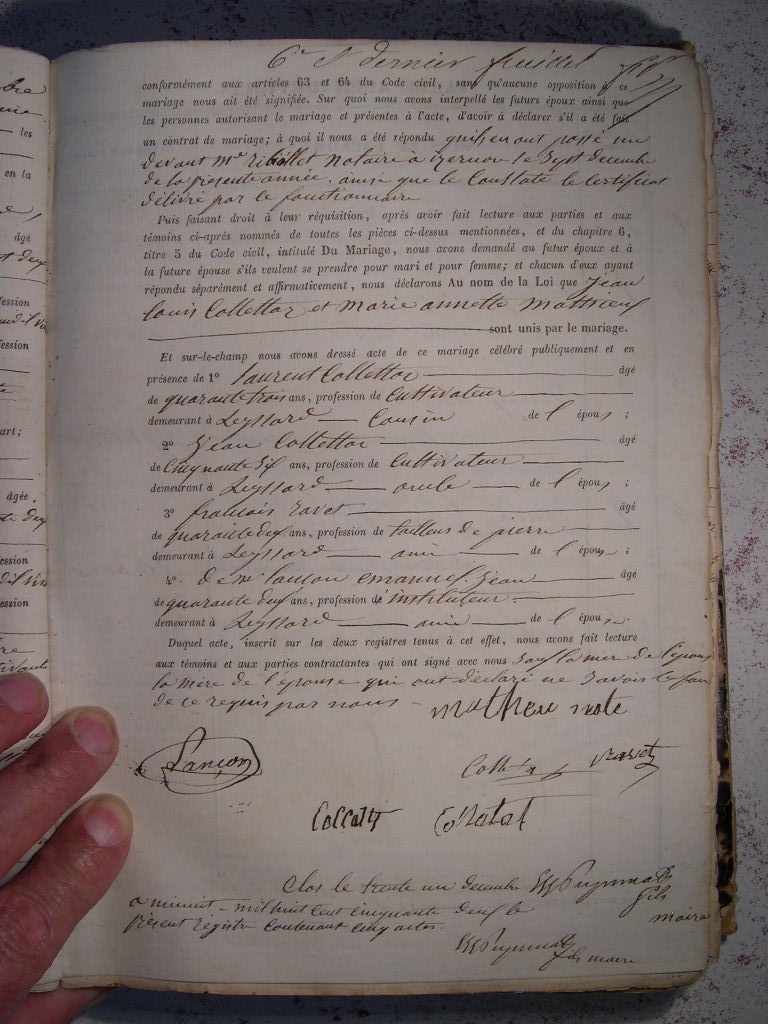 6e & dernier feuillet
conformément aux articles 63 et 64 du Code civil, sans qu'aucune opposition à ce
mariage nous ait été signifiée. Sur quoi nous avons interpellé les futurs époux ainsi que
les personnes autorisant le mariage et présentes à l'acte, d'avoir à déclarer s'il a été fait
un contrat de mariage; à quoi il nous a été répondu quils en ont passé un
devant Me notaire à izernore le Sept decembre
de la presente année. ainsi que le Constate le Certificat
délivré par le fonctionnaire
Puis faisant droit à leur réquisition, après avoir fait lecture aux parties et aux
témoins ci-après nommés de toutes les pièces ci-dessus mentionnées, et du chapitre 6,
titre 5 du Code civil, intitulé Du Mariage, nous avons demandé au futur époux et à
la future épouse s'ils veulent se prendre pour mari et pour femme; et chacun d'eux ayant
répondu séparément et affirmativement, nous déclarons Au nom de la Loi que Jean
Louis Collettaz et marie annette Matthieux
sont unis par le mariage.
Et sur-le-champ nous avons dressé acte de ce mariage célébré publiquement et en
présence de 1° laurent Collettaz âgé
de quarante trois ans, profession de Cultivateur
demeurant à Leyssard Cousin de l'époux;
2° Jean Collettaz âgé
de Cinquante Six ans, profession de Cultivateur
demeurant à Leyssard oncle de l'époux;
3° francois ravet âgé
de quarante deux ans, profession de tailleur de pierre
demeurant à Leyssard ami de l'époux;
4° de mr lançon emanuel jean âgé
de quarante deux ans, profession d'instituteur
demeurant à Leyssard ami de l'époux.
Duquel acte, inscrit sur les deux registres tenus à cet effet, nous avons fait lecture
aux témoins et aux parties contractantes qui ont signé avec nous Sauf la mere de l'époux
la mère de l'épouse qui ont déclaré ne Savoir le faire
de ce requis par nous matheu
Lançon
Ravet
Clos le trente un decembre
fils
a minuit mil huit cent cinquante deux le maire
present Registre contenant cinq actes
fils maire